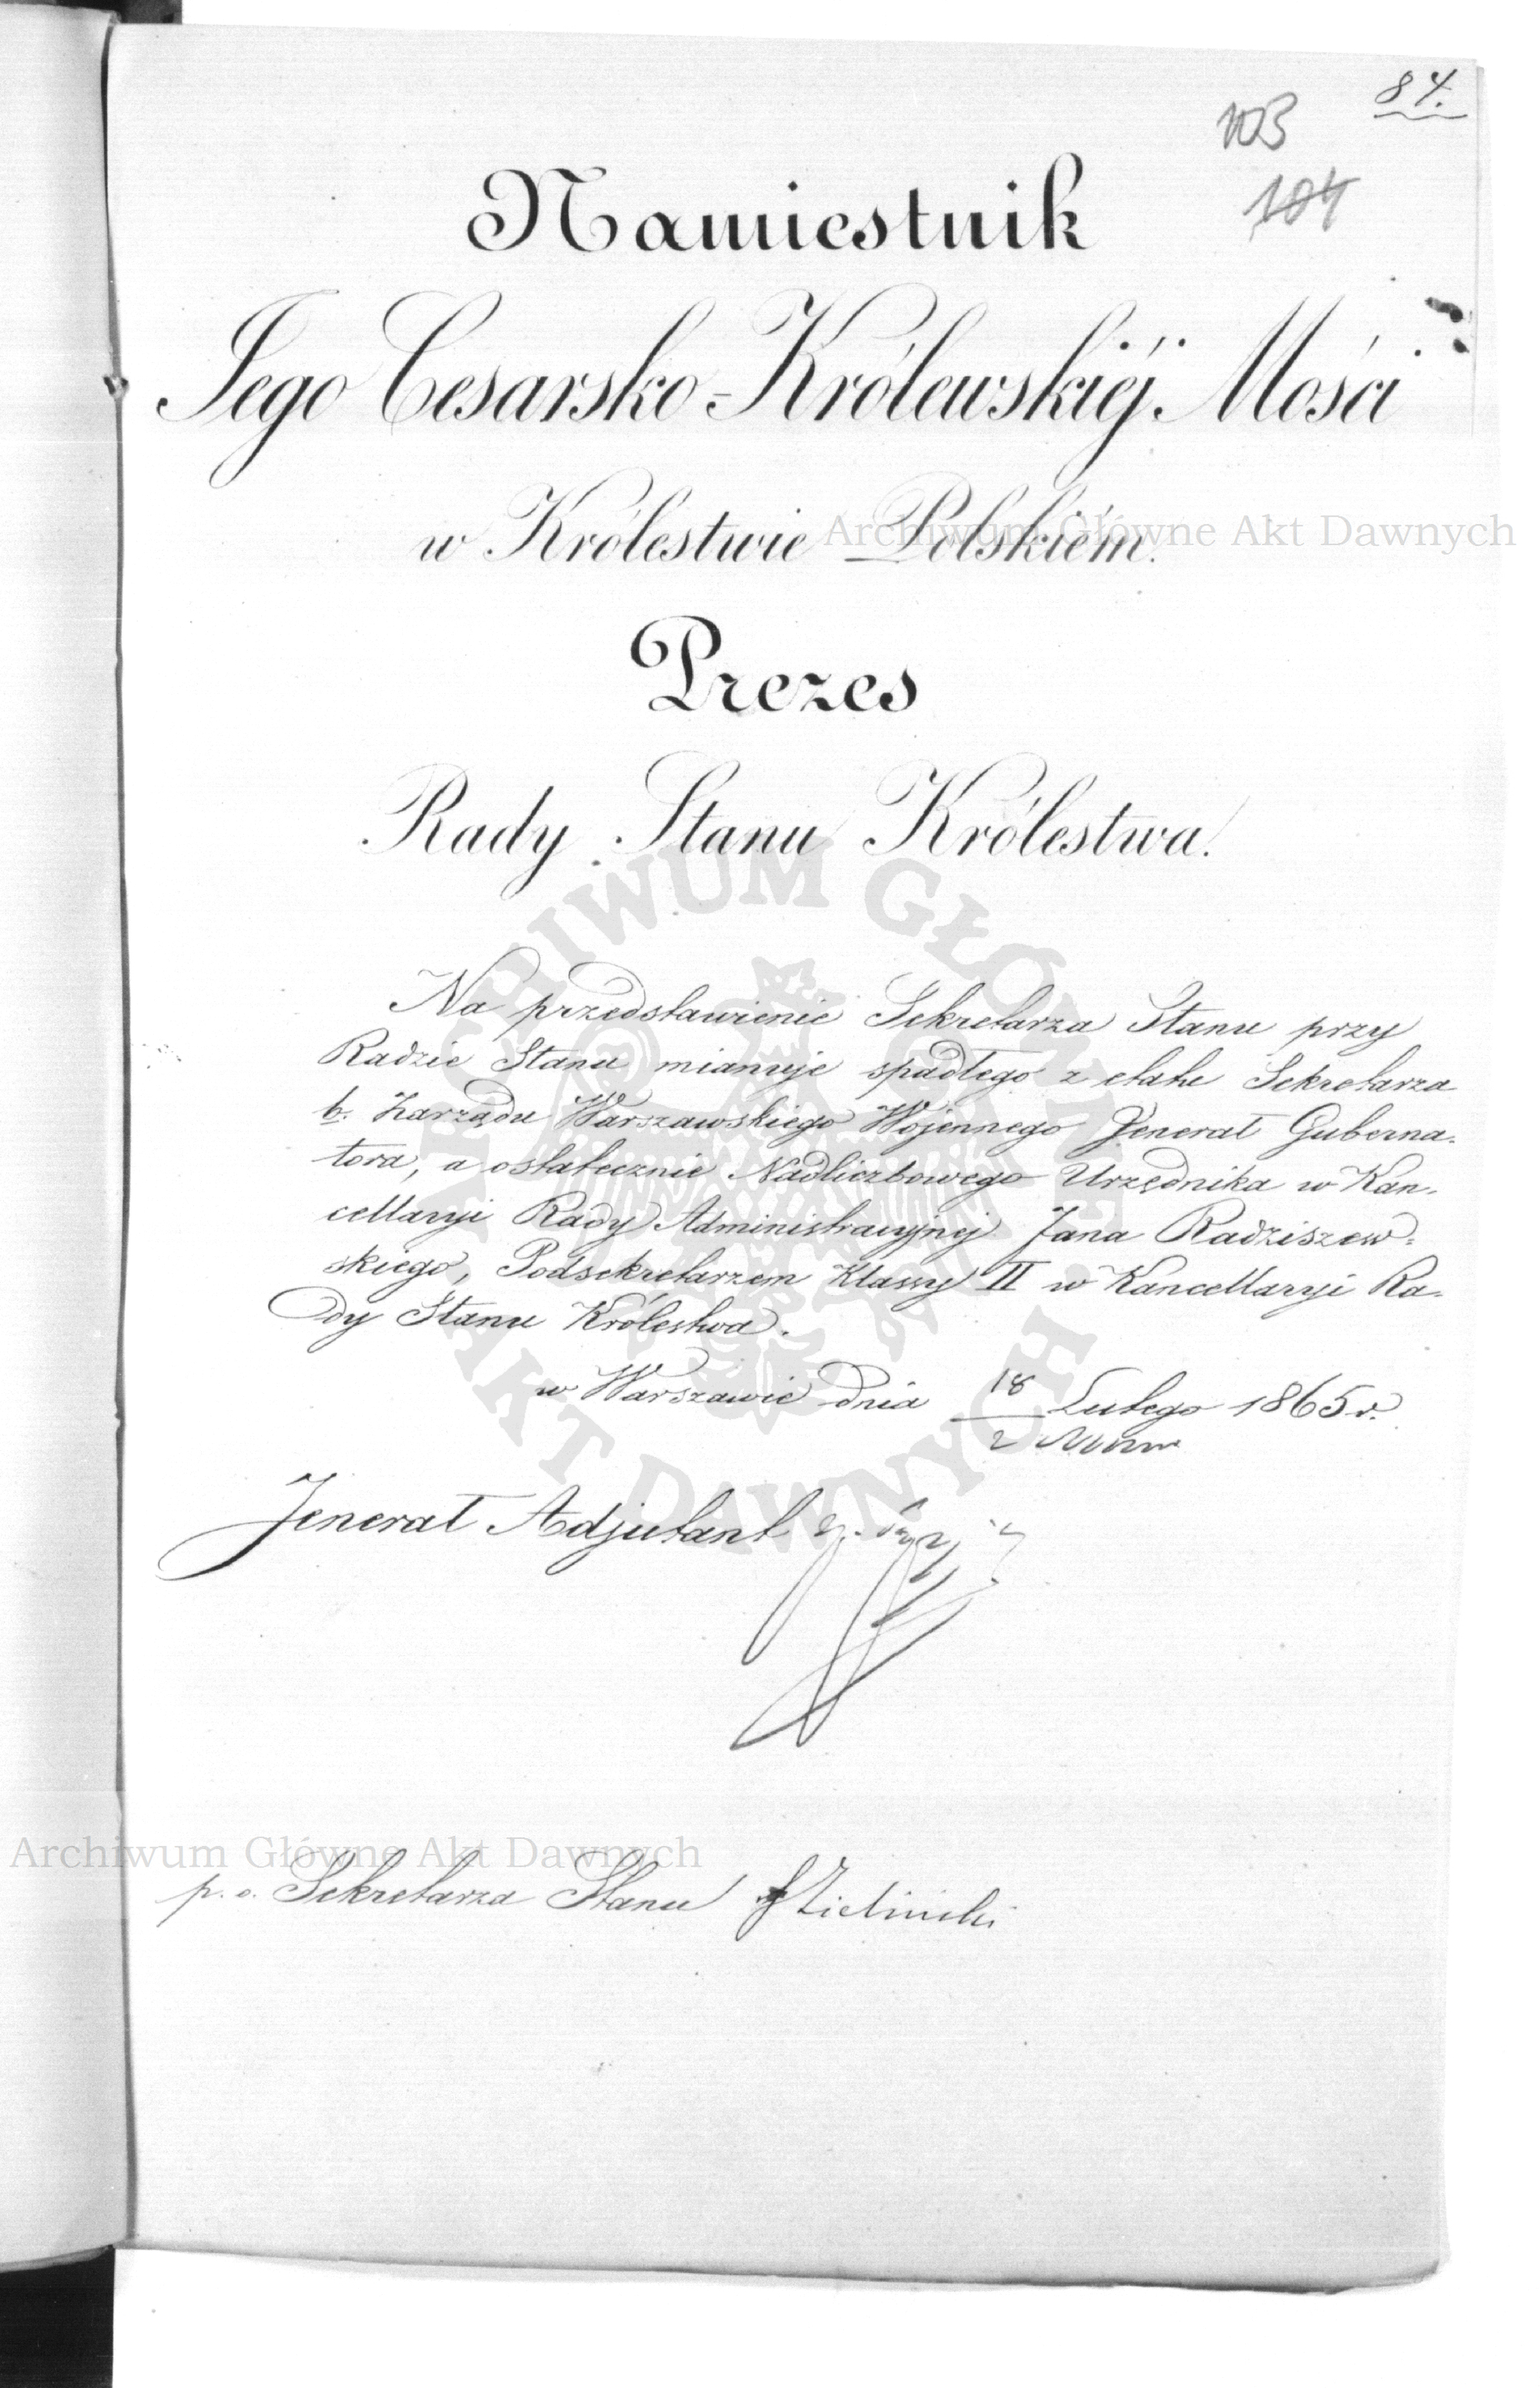 84.
103
104
Namiestnik
Jego Cesarsko-Królewskiéj Mości
w Królestwie Polskiém.
Archiwum Główne Akt Dawnych
Prezes
Rady Stanu Królestwa.
ARCHIWUM GŁÓWNE AKT DAWNYCH
Na przedstawienie Sekretarza Stanu przy
Radzie Stanu mianuje spadłego z etatu Sekretarza
b. Zarządu Warszawskiego Wojennego Jenerał Guberna-
tora, a ostatecznie Nadliczbowego Urzędnika w Kan-
cellaryi Rady Administracyjnej Jana Radziszew-
skiego, Podsekretarzem Klassy II w Kancellaryi Ra-
dy Stanu Królestwa.
w Warszawie dnia 18 Lutego 1865 r.
2 Marca
Jenerał Adjutant
Archiwum Główne Akt Dawnych
p. o. Sekretarza Stanu Zieliński